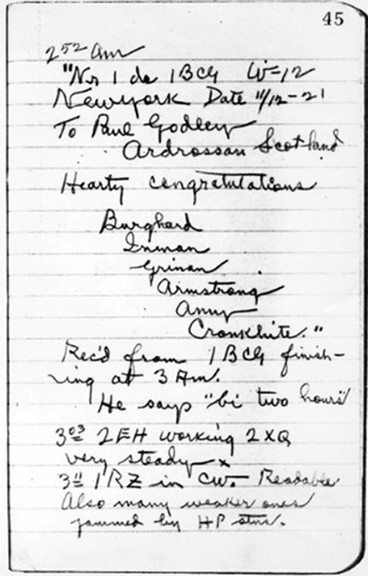 45
2 52 am
"Nr 1 de 1BCG W-12
New York Date 11/12-21
To Paul Godley
Ardrossan Scotland
Hearty congratulations
Burghard
Inman
Grinan
Armstrong
Amy
Cronkhite."
Rec'd from 1BCG finish-
ing at 3 Am.
He says "bi two hours"
3 03 2EH working 2XQ
very steady x
3 11 1RZ in cw. Readable
Also many weaker ones
jammed by HP stns.